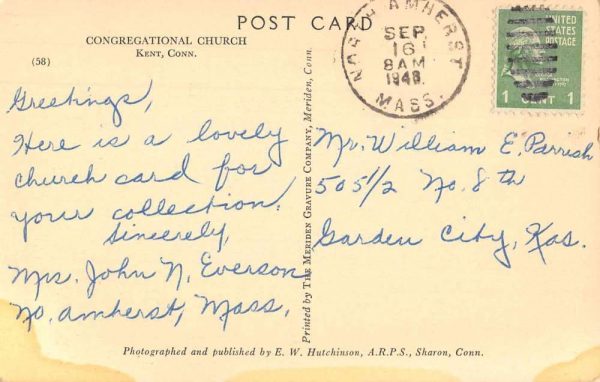 POST CARD
CONGREGATIONAL CHURCH
KENT, CONN.
(58)
NORTH AMHERST
SEP
16
8 AM
1948
MASS.
UNITED
STATES
POSTAGE
1 CENT 1
Greetings,
Here is a lovely
church card for
your collection.
Sincerely,
Mrs. John N. Everson
No. Amherst, Mass.
Printed by THE MERIDEN GRAVURE COMPANY, Meriden, Conn.
Mr. William E. Parrish
505 1/2 No. 8th
Garden City, Kas.
Photographed and published by E. W. Hutchinson, A.R.P.S., Sharon, Conn.